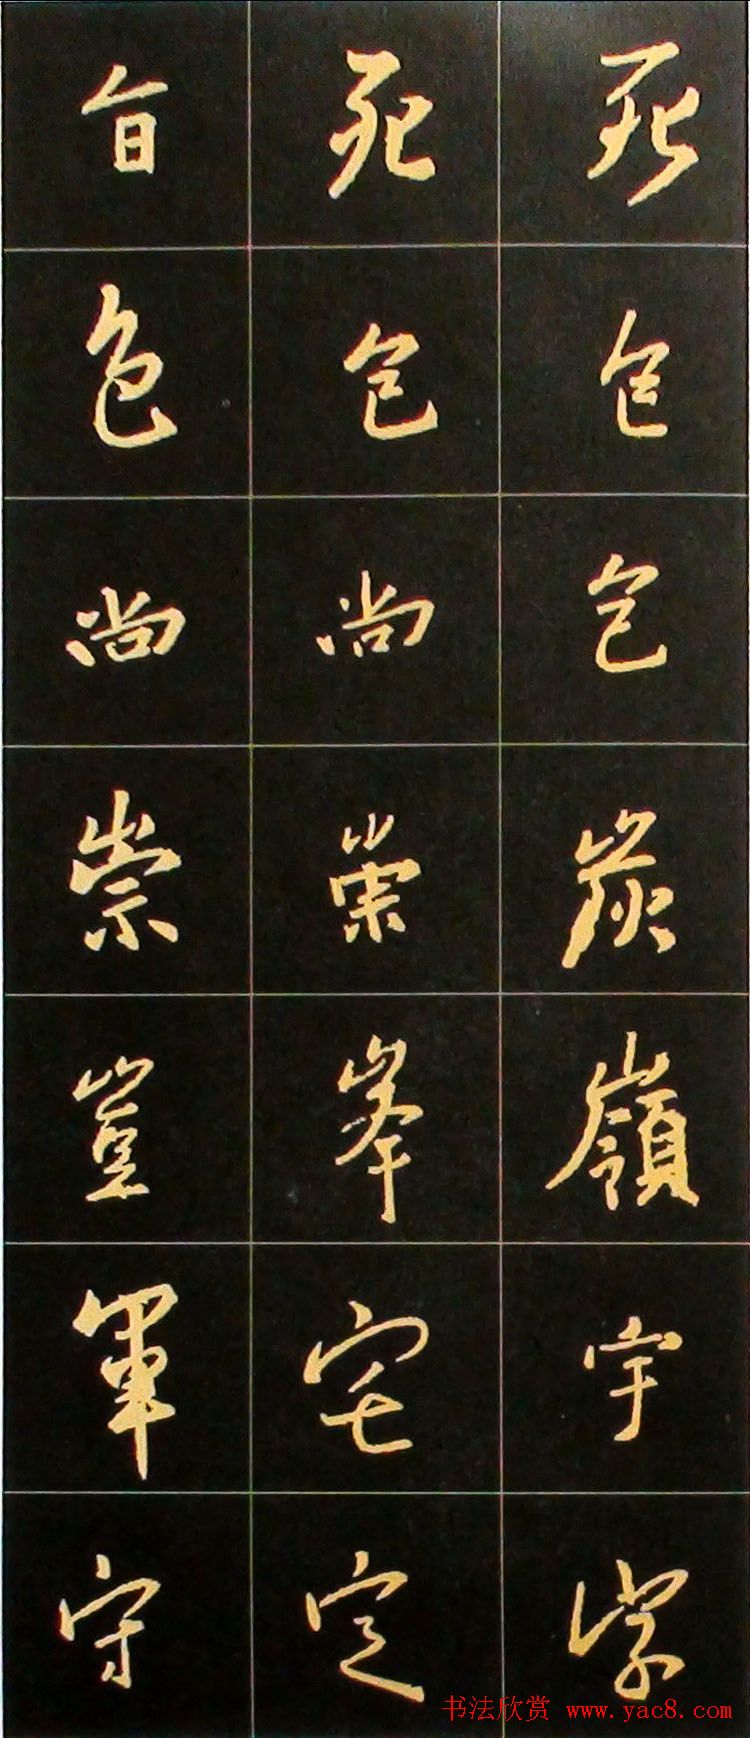 旨 死 死
色 包 包
尚 尚 包
崇 崇 炭
豈 峯 嶺
軍 宅 宇
守 定 字
书法欣赏 www.yac8.com